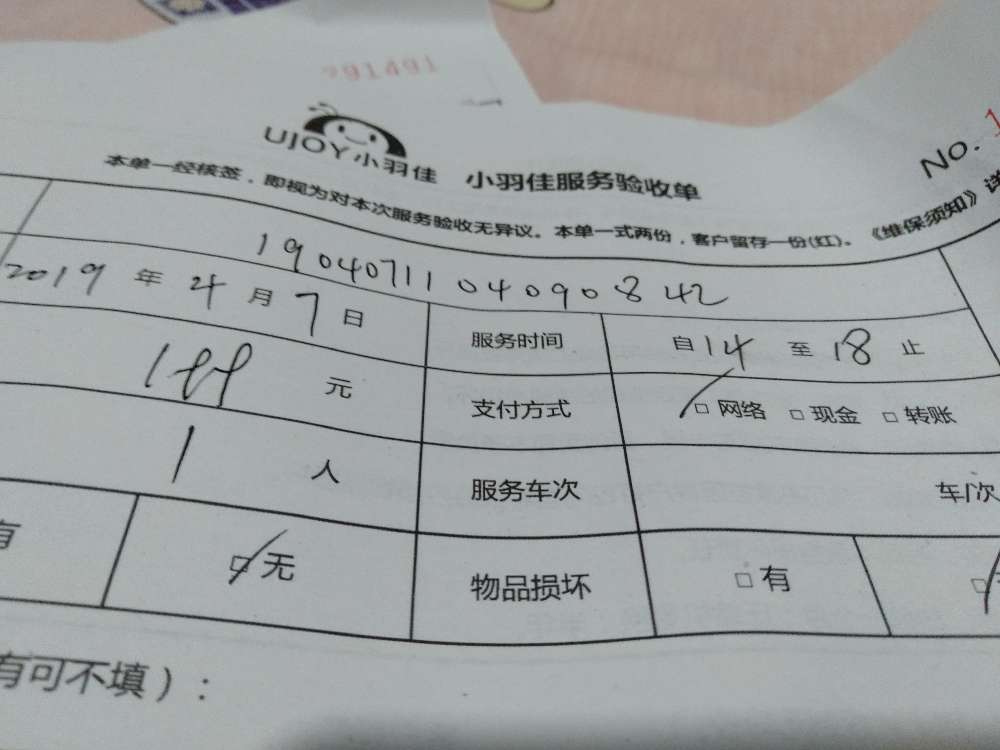 91491
UJOY小羽佳 小羽佳服务验收单 No. 1
本单一经核签，即视为对本次服务验收无异议。本单一式两份，客户留存一份(红)。《维保须知》详
1904071104090842
2019 年 4 月 7 日 服务时间 自 14 至 18 止
元 支付方式 □ 网络 □ 现金 □ 转账
1 人 服务车次 车/次
有 □ 无 物品损坏 □ 有 □
有可不填）：